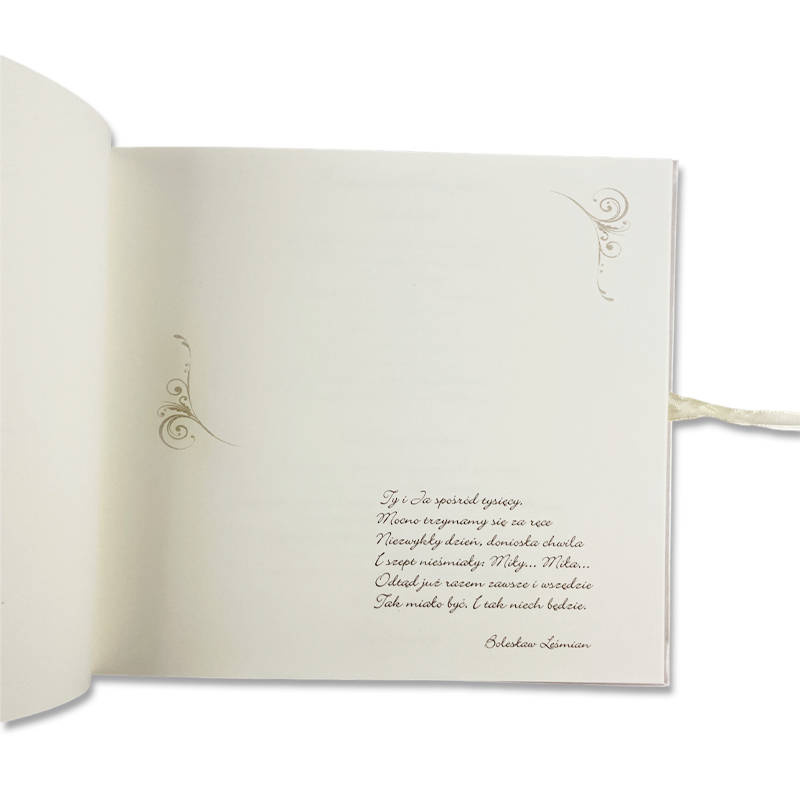 Ty i Ja spośród tysięcy.
Mocno trzymamy się za ręce
Niezwykły dzień, doniosła chwila
I szept nieśmiały: Miły... Miła...
Odtąd już razem zawsze i wszędzie
Tak miało być. I tak niech będzie.
Bolesław Leśmian